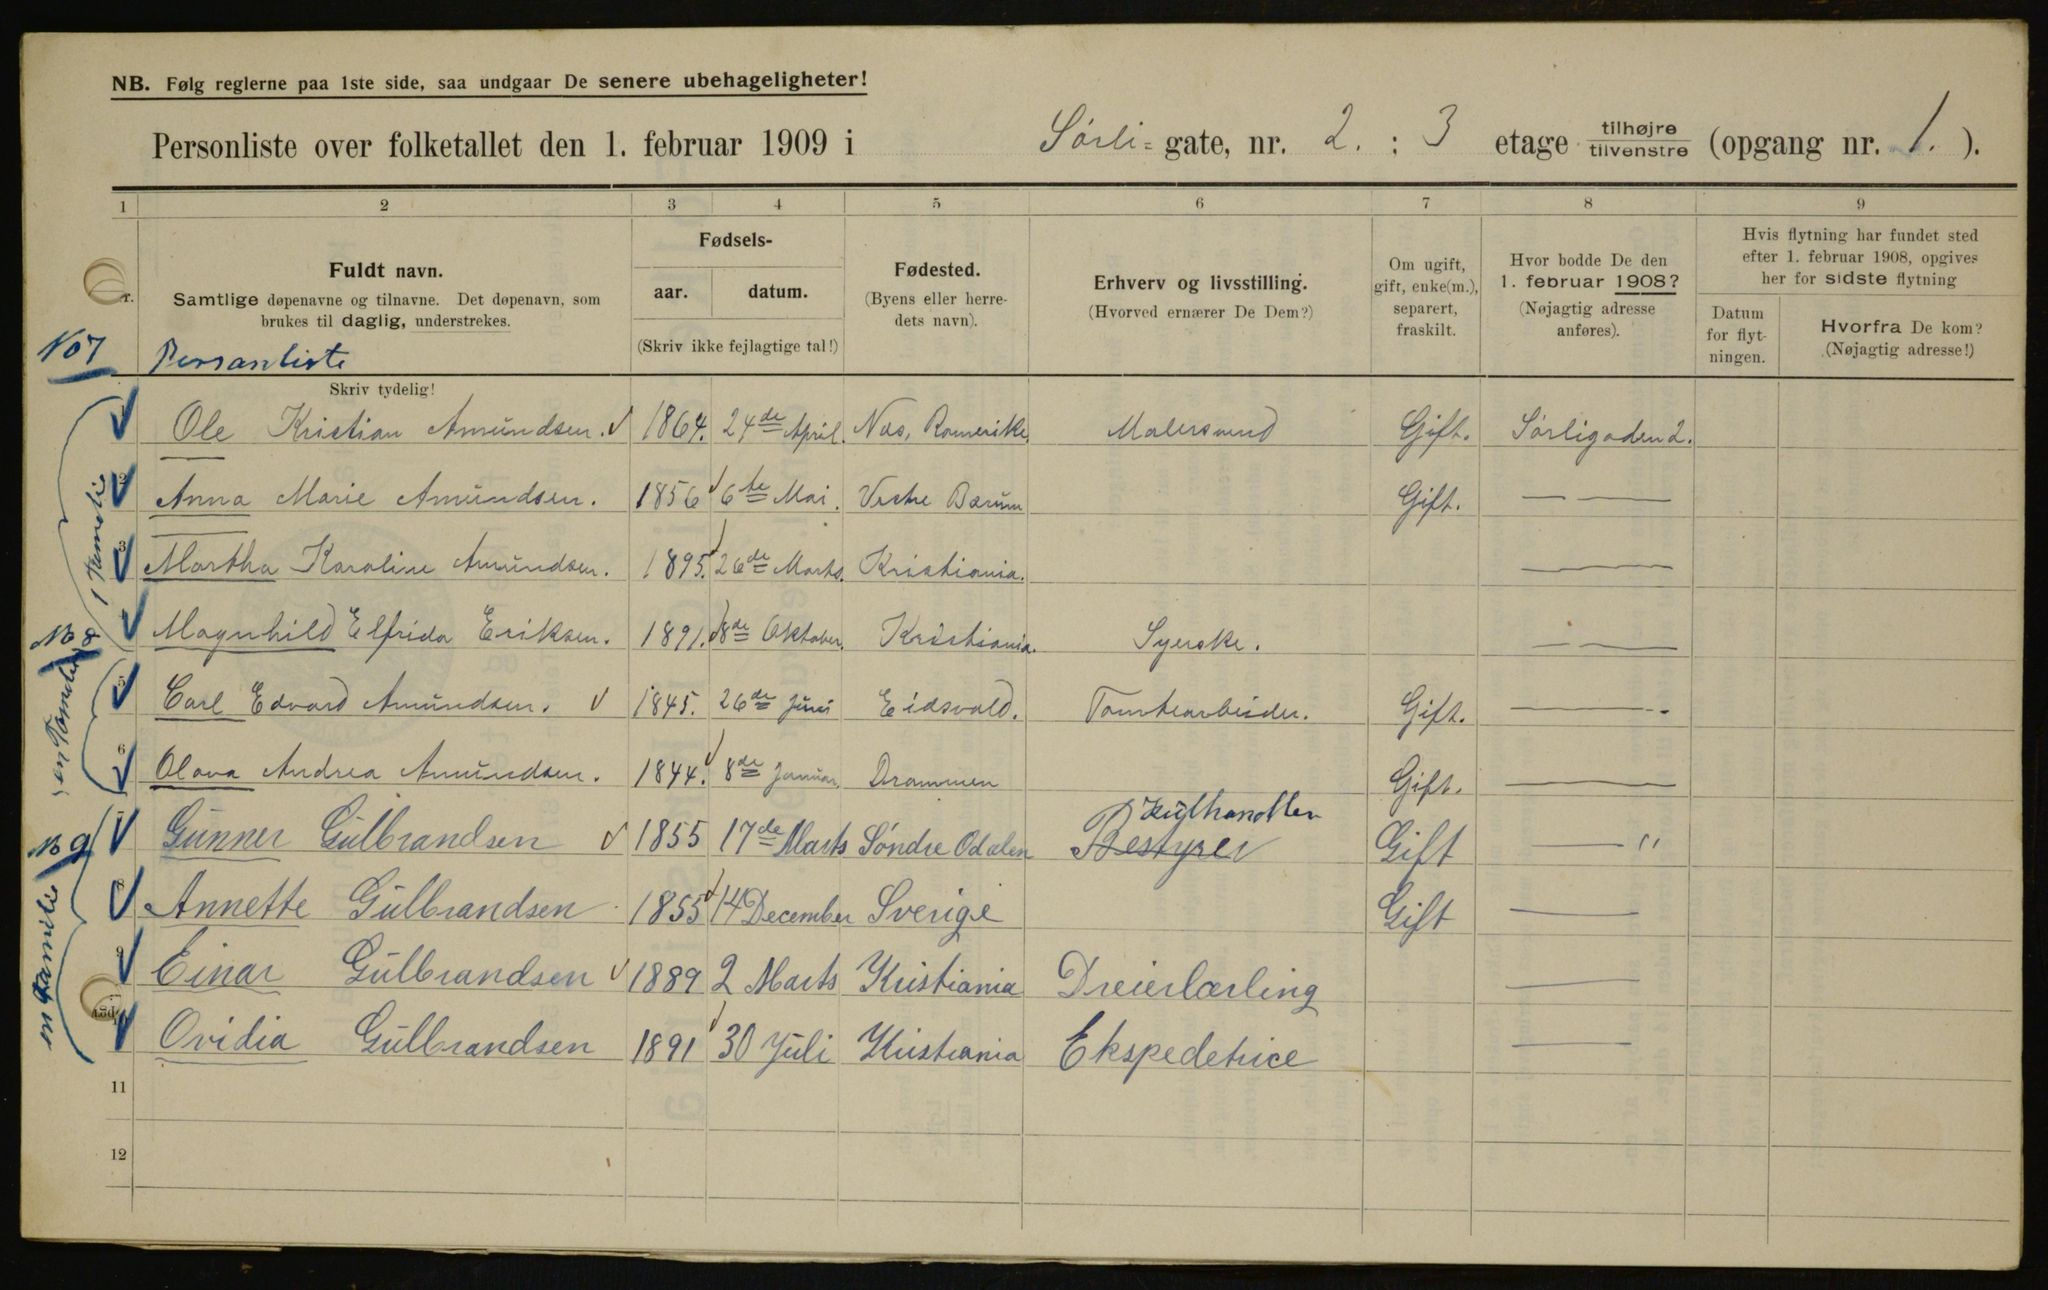 NB. Følg reglerne paa 1ste side, saa undgaar De senere ubehageligheter!
Personliste over folketallet den 1. februar 1909 i Sörli= gate, nr. 2. : 3 etage tilhøjre tilvenstre (opgang nr. 1. ).
1 2 3 4 5 6 7 8 9
Fuldt navn.
Samtlige døpenavne og tilnavne. Det døpenavn, som
brukes til daglig, understrekes.
Skriv tydelig!
Fødsels-
aar. datum.
(Skriv ikke fejlagtige tal!)
Fødested.
(Byens eller herre-
dets navn).
Erhverv og livsstilling.
(Hvorved ernærer De Dem?)
Om ugift,
gift, enke(m.),
separert,
fraskilt.
Hvor bodde De den
1. februar 1908?
(Nøjagtig adresse
anføres).
Hvis flytning har fundet sted
efter 1. februar 1908, opgives
her for sidste flytning
Datum
for flyt-
ningen.
Hvorfra De kom?
(Nøjagtig adresse!)
No 7 Personliste
Ole Kristian Amundsen. 1864. 24de April. Næs, Romerike. Malersvend Gift. Sörligaden 2.
2 Anna Marie Amundsen. 1856 6te Mai. Vestre Bærum Gift. — —
3 Martha Karoline Amundsen. 1895. 26de Marts. Kristiania. ——
1 Familie
Magnhild Elfrida Eriksen. 1891. 8de Oktober. Kristiania. Syerske. — —
No 8
5 Carl Edvard Amundsen. 1845. 26de Juni Eidsvold. Tomtearbeider. Gift. ——
en Familie
6 Olava Andrea Amundsen. 1844. 8de Januar Drammen Gift. ——
No 9
7 Gunner Gulbrandsen 1855 17de Marts Söndre Odalen Bestyrer Kulhandler Gift — "
8 Annette Gulbrandsen 1855 14 December Sverige Gift ——
en Familie
9 Einar Gulbrandsen 1889 2 Marts Kristiania Dreierlærling ——
Ovidia Gulbrandsen 1891 30 Juli Kristiania Ekspedetrice ——
11
12